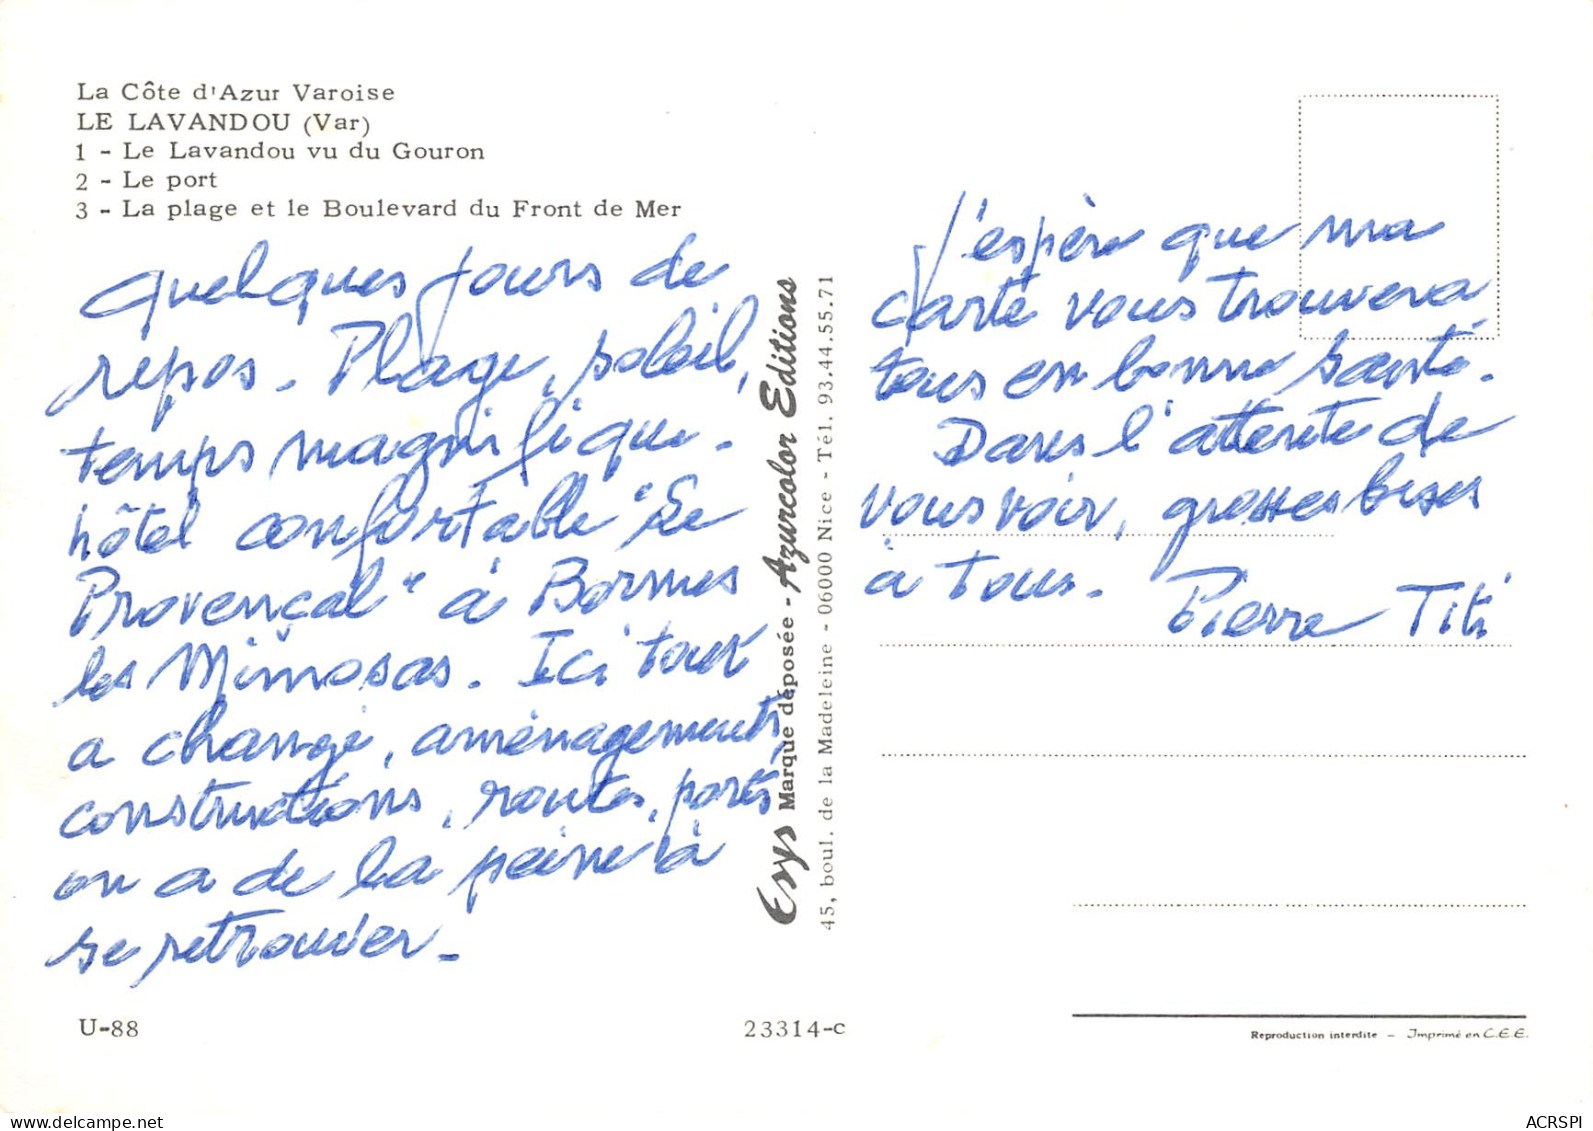 La Côte d'Azur Varoise
LE LAVANDOU (Var)
1 - Le Lavandou vu du Gouron
2 - Le port
3 - La plage et le Boulevard du Front de Mer
Quelques jours de
repos. Plage, soleil,
temps magnifique.
hôtel confortable "Le
Provençal" à Bormes
les Mimosas. Ici tout
a changé, aménagements,
constructions, routes, ports
on a de la peine à
se retrouver.
U-88
Esys Marque déposée - Azurcolor Editions
45, boul. de la Madeleine - 06000 Nice - Tél. 93.44.55.71
23314-c
J'espère que ma
carte vous trouvera
tous en bonne santé.
Dans l'attente de
vous voir, grosses bises
à tous. Pierre Titi
Reproduction interdite - Imprimé en C.E.E.
ACRSPI